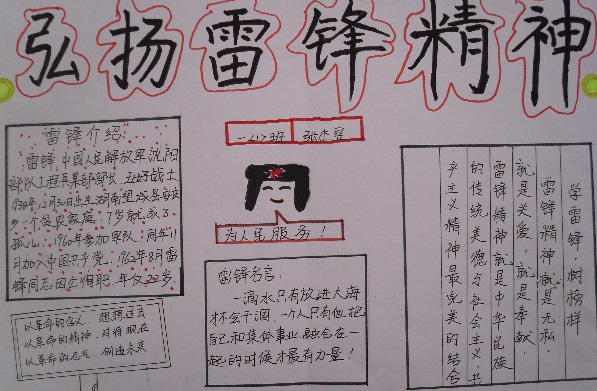 弘扬雷锋精神
雷锋介绍
雷锋,中国人民解放军沈阳
部队工程兵某部部长,五好战士
1940年12月30日出生湖南望城县安庆
乡一个贫农家庭。7岁就成了
孤儿。1960年参加军队,同年11
月加入中国共产党。1962年8月雷
锋同志因公殉职,年仅22岁
以革命的名义,想想过去
以革命的精神,对待现在
以革命的志气,创造未来
为人民服务!
雷锋名言:
一滴水只有放进大海
才不会干涸,一个人只有他把
自己和集体事业融合在一
起的时候才最有力量!
学雷锋,树榜样
雷锋精神就是无私,
就是关爱,就是奉献.
雷锋精神就是中华民族
的传统美德与社会主义、共
产主义精神最完美的结合